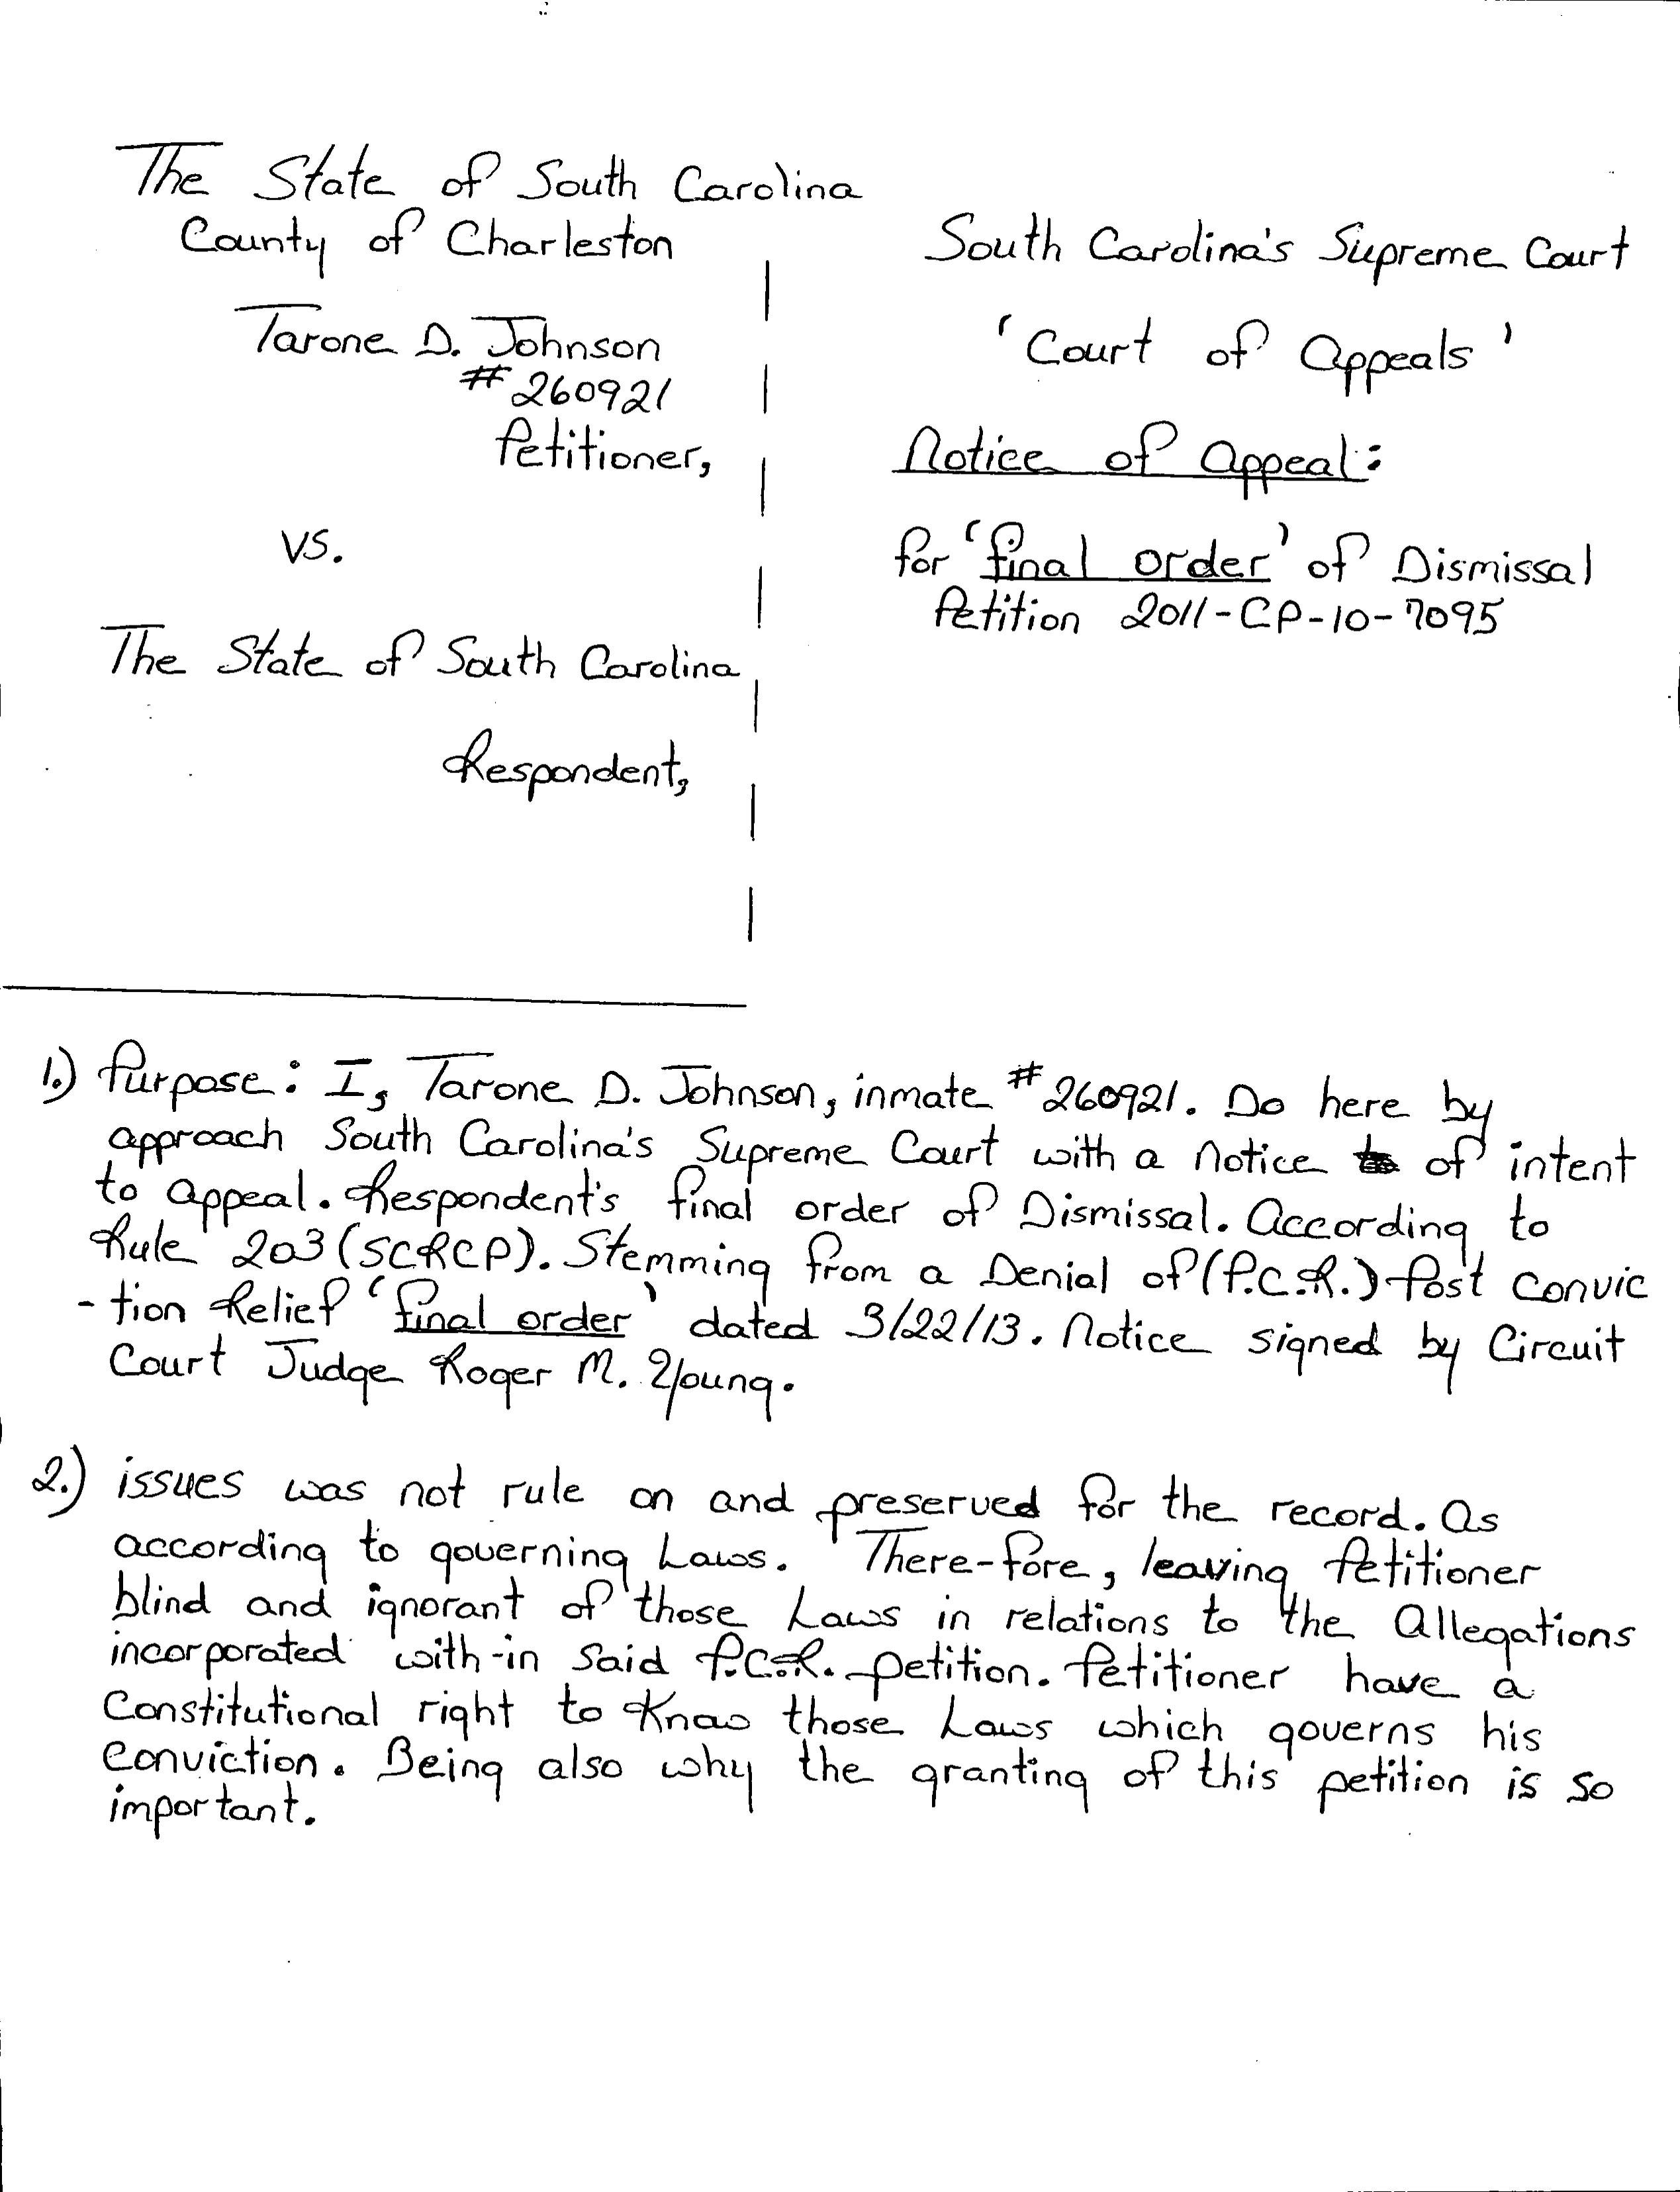 The State of South Carolina
County of Charleston
Tarone D. Johnson
#260921
Petitioner,
vs.
The State of South Carolina
Respondent,
South Carolina's Supreme Court
'Court of Appeals'
Notice of Appeal:
for 'final order' of Dismissal
Petition 2011-CP-10-7095
1.) Purpose: I, Tarone D. Johnson, inmate #260921. Do here by
approach South Carolina's Supreme Court with a notice of intent
to appeal. Respondent's final order of Dismissal. According to
Rule 203 (SCRCP). Stemming from a Denial of (P.C.R.) Post Convic
-tion Relief 'final order' dated 3/22/13. Notice signed by Circuit
Court Judge Roger M. Young.
2.) issues was not rule on and preserved for the record. As
according to governing Laws. There-fore, leaving Petitioner
blind and ignorant of those Laws in relations to the Allegations
incorporated with-in said P.C.R. petition. Petitioner have a
Constitutional right to Know those Laws which governs his
Conviction. Being also why the granting of this petition is so
important.